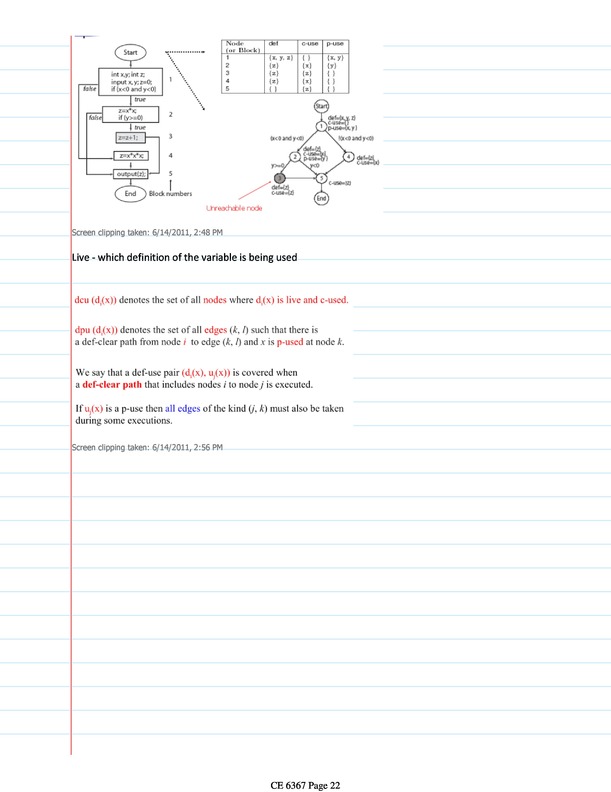 Start
int x,y; int z;
input x, y; z=0;
if (x<0 and y<0)
1
false
true
z=x*x;
if (y>=0)
2
false
true
z=z+1;
3
z=x*x*x;
4
output(z);
5
End
Block numbers
Node (or Block) def c-use p-use
1 {x, y, z} { } {x, y}
2 {z} {x} {y}
3 {z} {z} { }
4 {z} {x} { }
5 { } {z} { }
Start
1
def={x, y, z}
c-use={}
p-use={x, y}
(x<0 and y<0)
!(x<0 and y<0)
2
def={z}
c-use={x}
p-use={y}
4
def={z}
c-use={x}
y>=0
y<0
5
c-use={z}
def={z}
c-use={z}
End
Unreachable node
Screen clipping taken: 6/14/2011, 2:48 PM
Live - which definition of the variable is being used
dcu (dᵢ(x)) denotes the set of all nodes where dᵢ(x) is live and c-used.
dpu (dᵢ(x)) denotes the set of all edges (k, l) such that there is
a def-clear path from node i to edge (k, l) and x is p-used at node k.
We say that a def-use pair (dᵢ(x), uⱼ(x)) is covered when
a def-clear path that includes nodes i to node j is executed.
If uⱼ(x) is a p-use then all edges of the kind (j, k) must also be taken
during some executions.
Screen clipping taken: 6/14/2011, 2:56 PM
CE 6367 Page 22